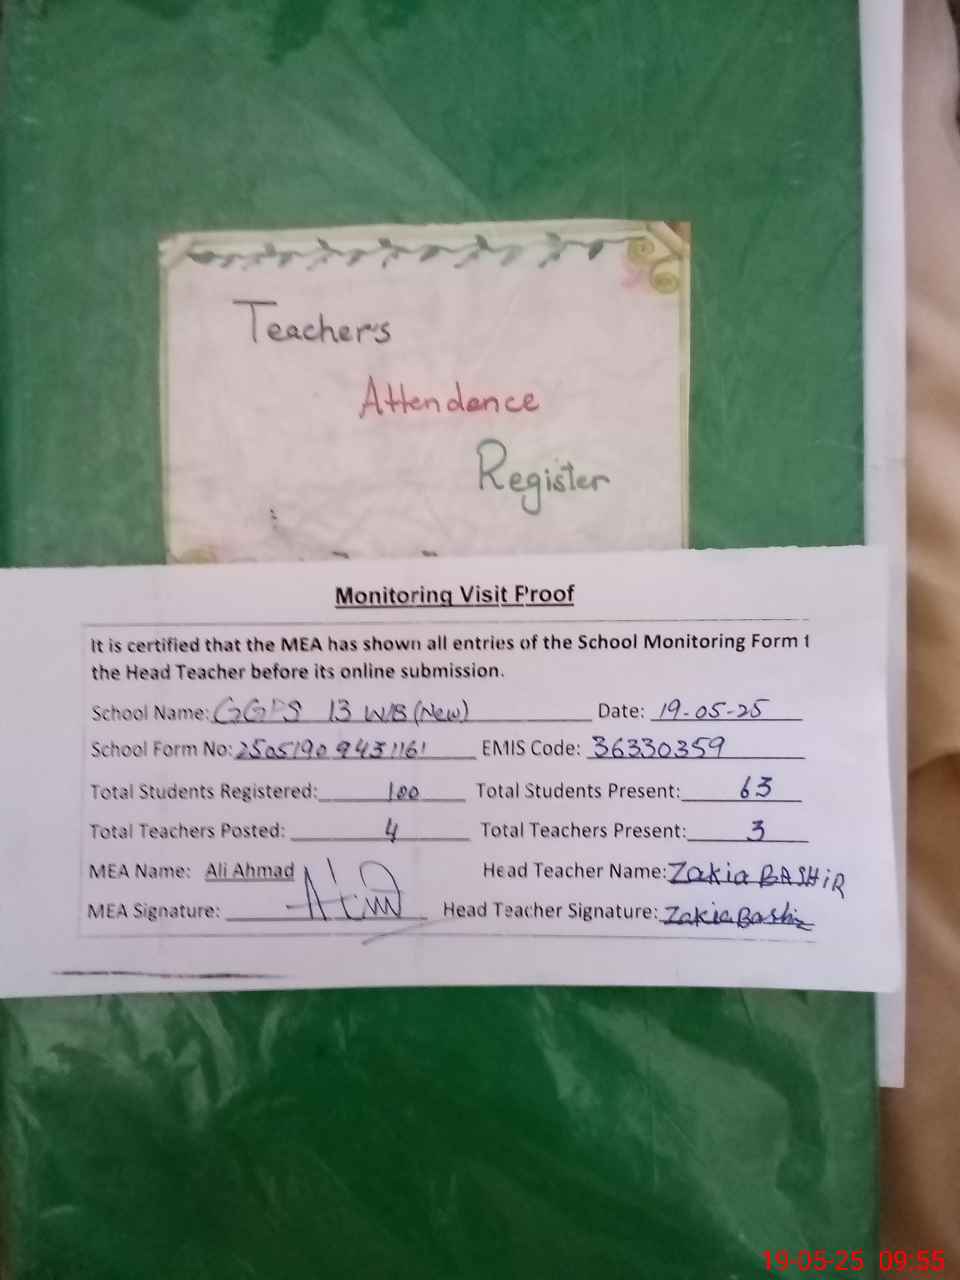 Teacher's
Attendence
Register
Monitoring Visit Proof
It is certified that the MEA has shown all entries of the School Monitoring Form t
the Head Teacher before its online submission.
School Name: GGPS 13 W/B (New) Date: 19-05-25
School Form No: 2505190 9431161 EMIS Code: 36330359
Total Students Registered: 100 Total Students Present: 63
Total Teachers Posted: 4 Total Teachers Present: 3
MEA Name: Ali Ahmad Head Teacher Name: Zakia BASHIR
MEA Signature: Head Teacher Signature: Zakia Bashir
19-05-25 09:55